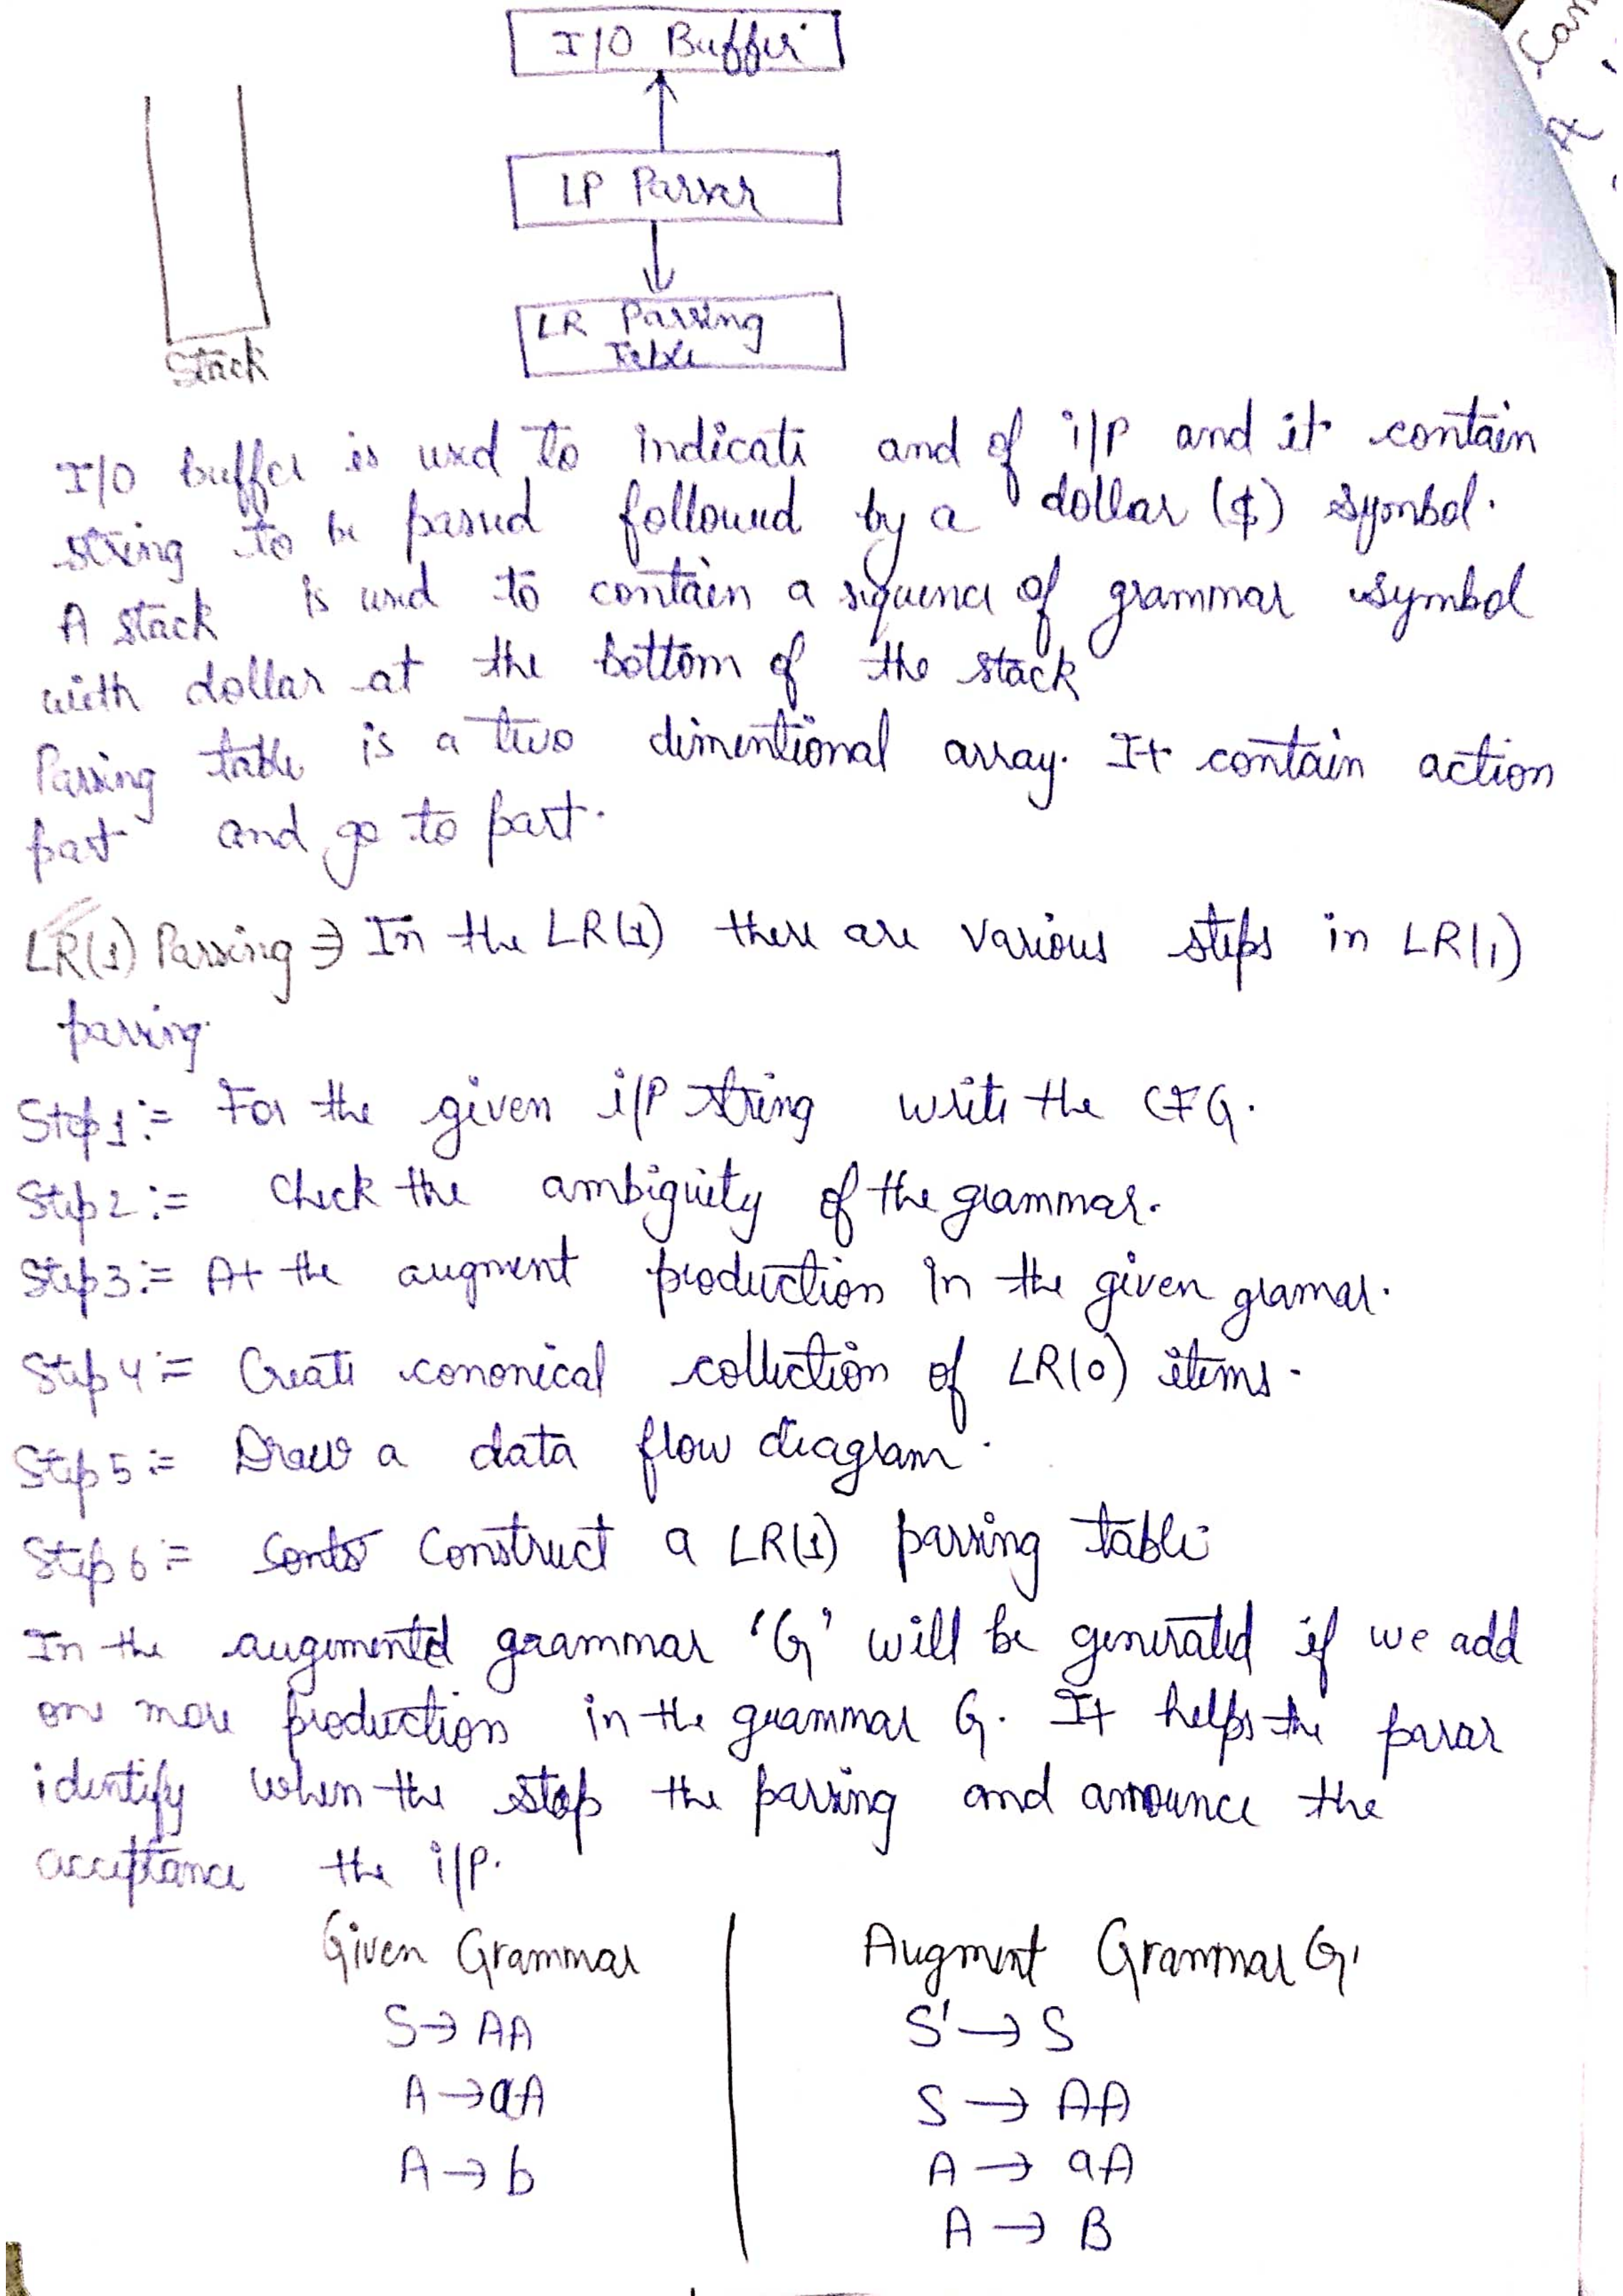 I/O Buffer
LP Parser
LR Parsing
Table
Stack
I/O buffer is used to indicati and of i/p and it contain
string to be parsed followed by a dollar ($) symbol.
A stack is used to contain a sequence of grammar symbol
with dollar at the bottom of the stack
Parsing table is a two dimentional array. It contain action
part and go to part.
LR(1) Parsing → In the LR(1) there are various steps in LR(1)
parsing.
Step1:= For the given i/P string write the CFG.
Step2:= Check the ambiguity of the grammar.
Step3:= At the augment production in the given gramar.
Step4:= Create cononical collection of LR(0) items.
Step5:= Draw a data flow diagram.
Step6:= Construct a LR(1) parsing table
In the augumented grammar 'G' will be generated if we add
one more production in the grammar G. It helps the parar
identify when the stop the parsing and announce the
acceptance the i/p.
Given Grammar
S→AA
A→aA
A→b
Augment Grammar G'
S'→S
S→AA
A→aA
A→B
Can
A